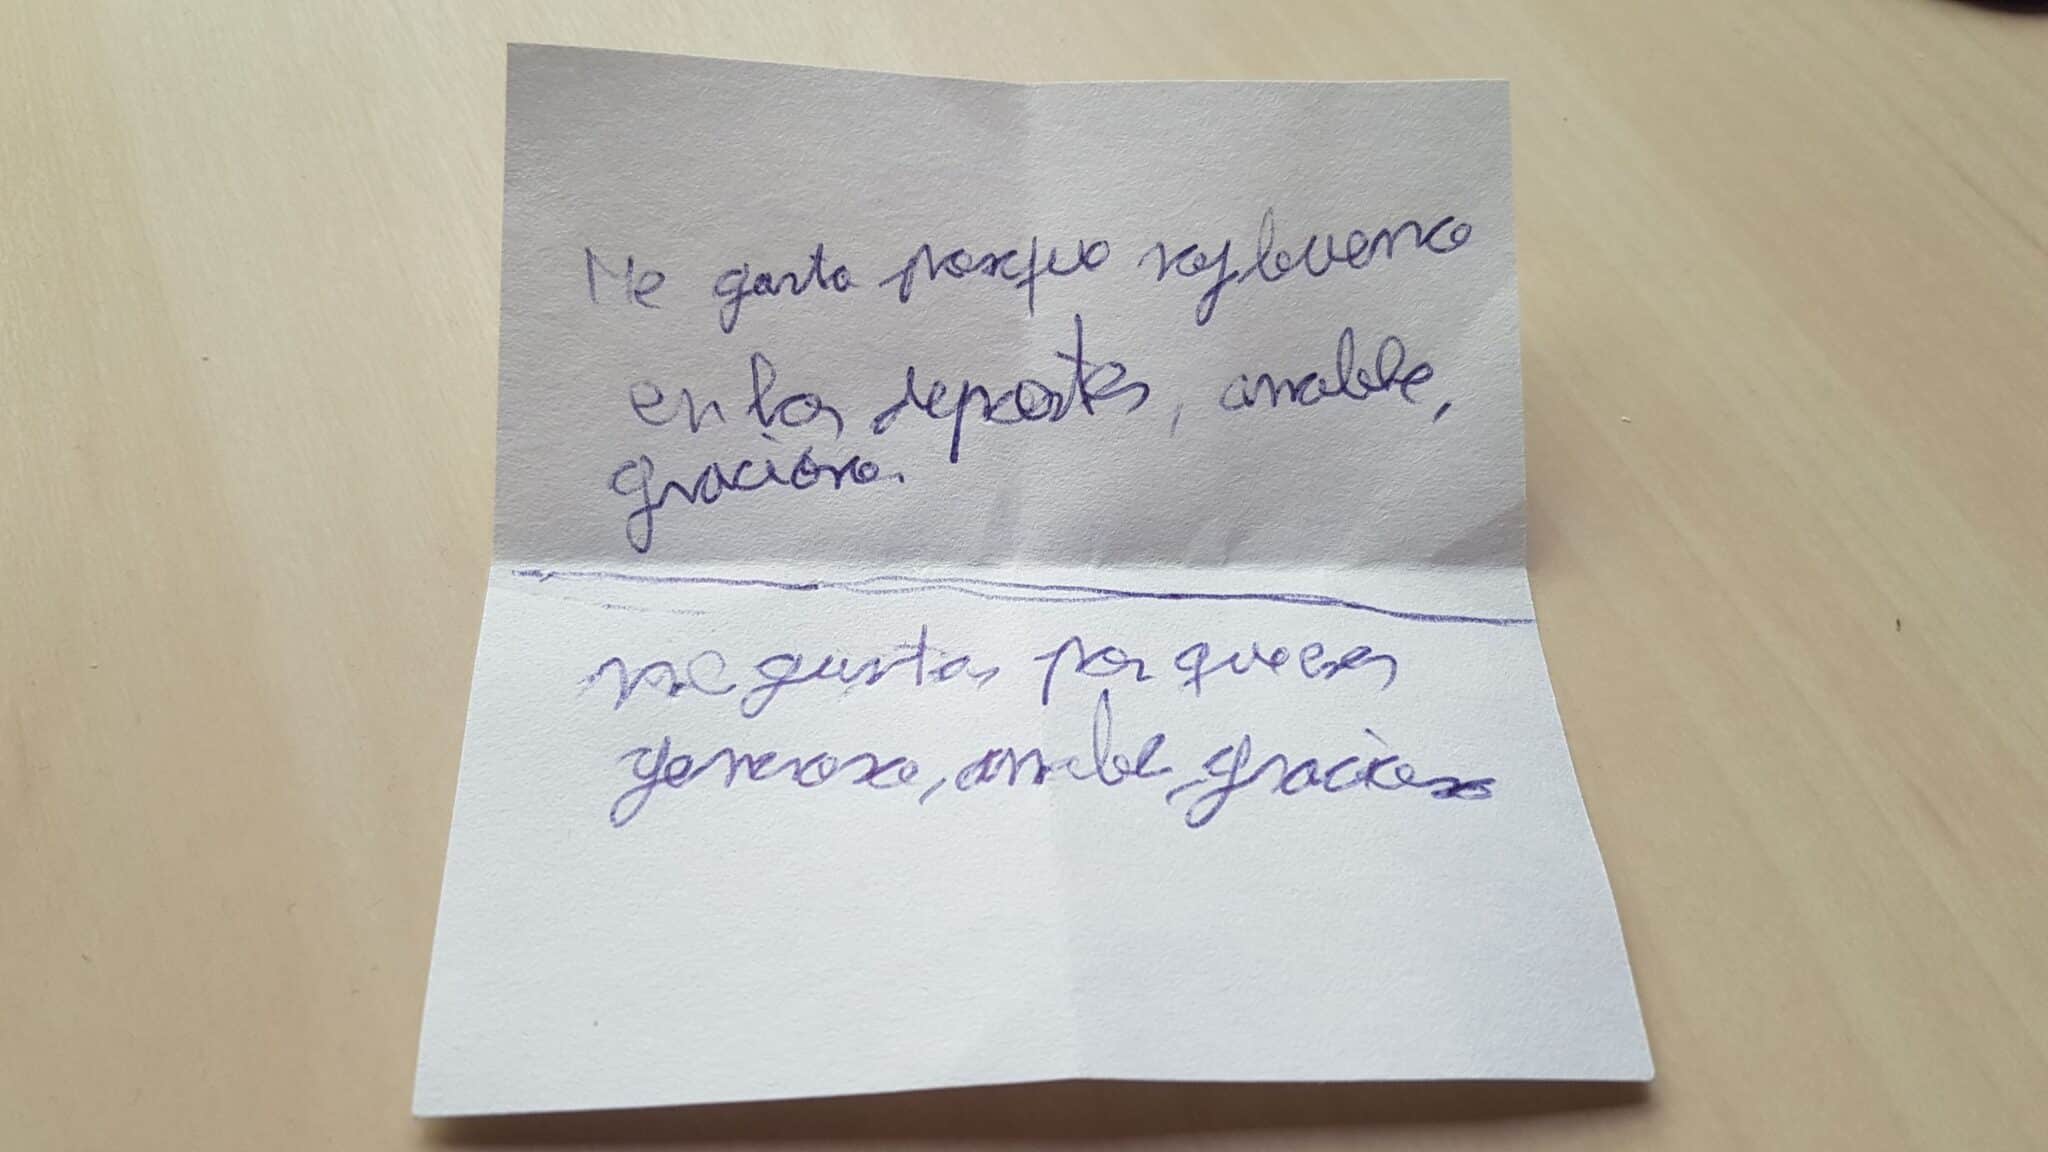 Me gusta porque soy bueno
en los deportes, amable,
gracioso.
me gustas porque eres
generoso, amable, gracioso